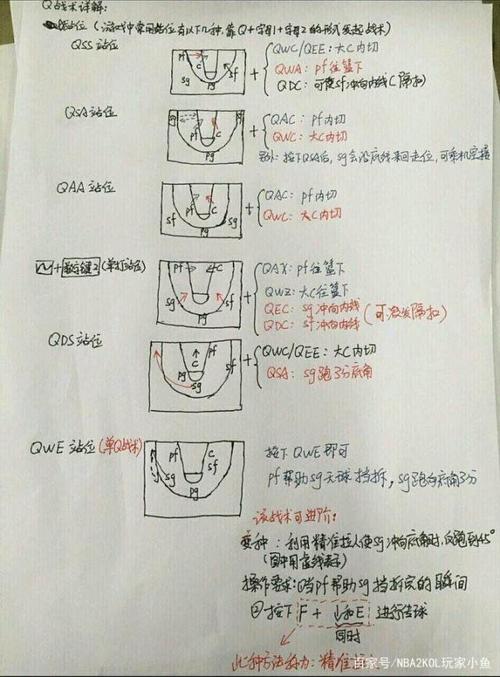 Q战术详解:
站位 (游戏中常用站位有以下几种, 靠Q+字母1+字母2的形式发起战术)
QSS 站位
pf C sf sg pg
+ QWC/QEE: 大C内切
QWA: pf往篮下
QDC: 可使sf冲向内线 (隔扣)
QSA站位
pf C sf pg
+ QAC: pf内切
QWC: 大C内切
另外: 按下QSA后, sg会沿底线来回走位, 可乘机空接
QAA 站位
pf C sf sg pg
+ QAC: pf内切
QWC: 大C内切
+ 2 (单打站位)
pf C sg sf pg
+ QAX: pf往篮下
QWZ: 大C往篮下
QEC: sg冲向内线
QDC: sf冲向内线
(可激发隔扣)
QDS站位
pf C sf sg pg
+ QWC/QEE: 大C内切
QSA: sg跑3分底角
QWE 站位 (单Q战术)
pf C sf sg pg
按下 QWE 即可
pf帮助sg无球挡拆, sg跑向底角3分
该战术可进阶:
变种: 利用精准拉人使sg冲向底角时, 反跑到45°
(图中用虚线表示)
操作要求: ①当pf帮助sg挡拆完的瞬间
②按下 F + ↓和E 进行传球
同时
此种方法称为: 精准
百家号/NBA2KOL玩家小鱼